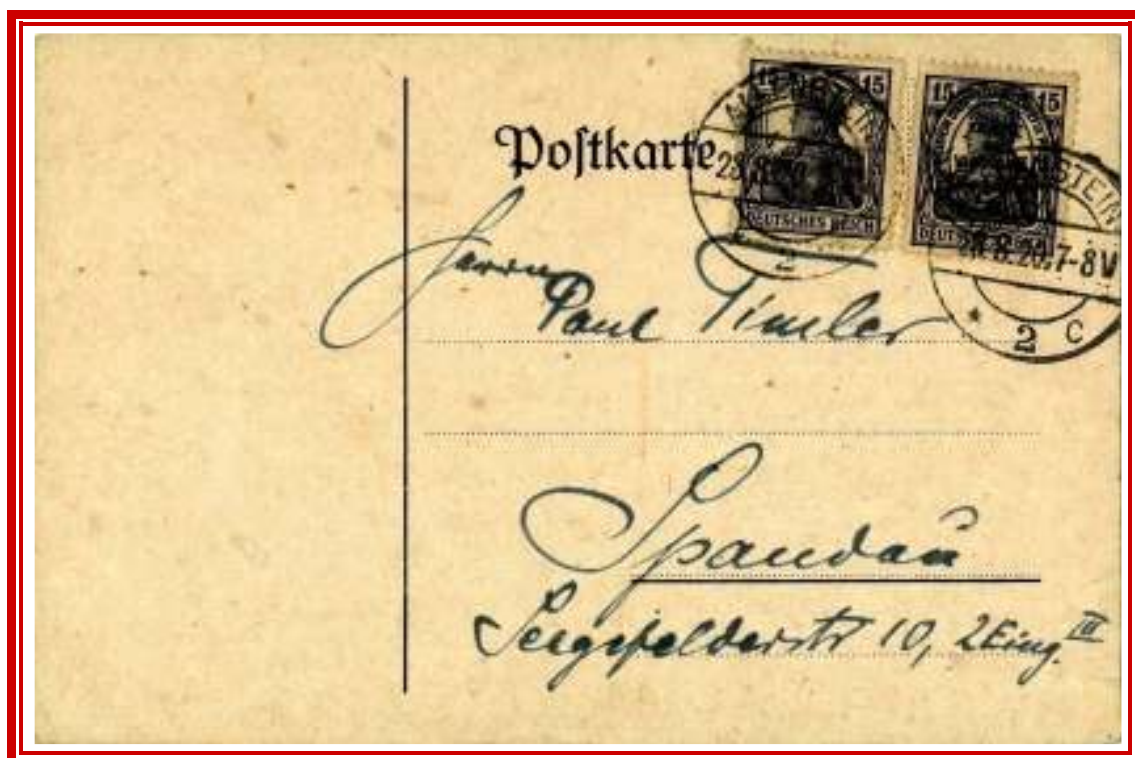 Postkarte
15 15
DEUTSCHES REICH
15 15
ALLENSTEIN
28.8.20.7-8V
* 2 c
Herrn
Paul Timler
Spandau
Seegefelderstr 10, 2Eing. III